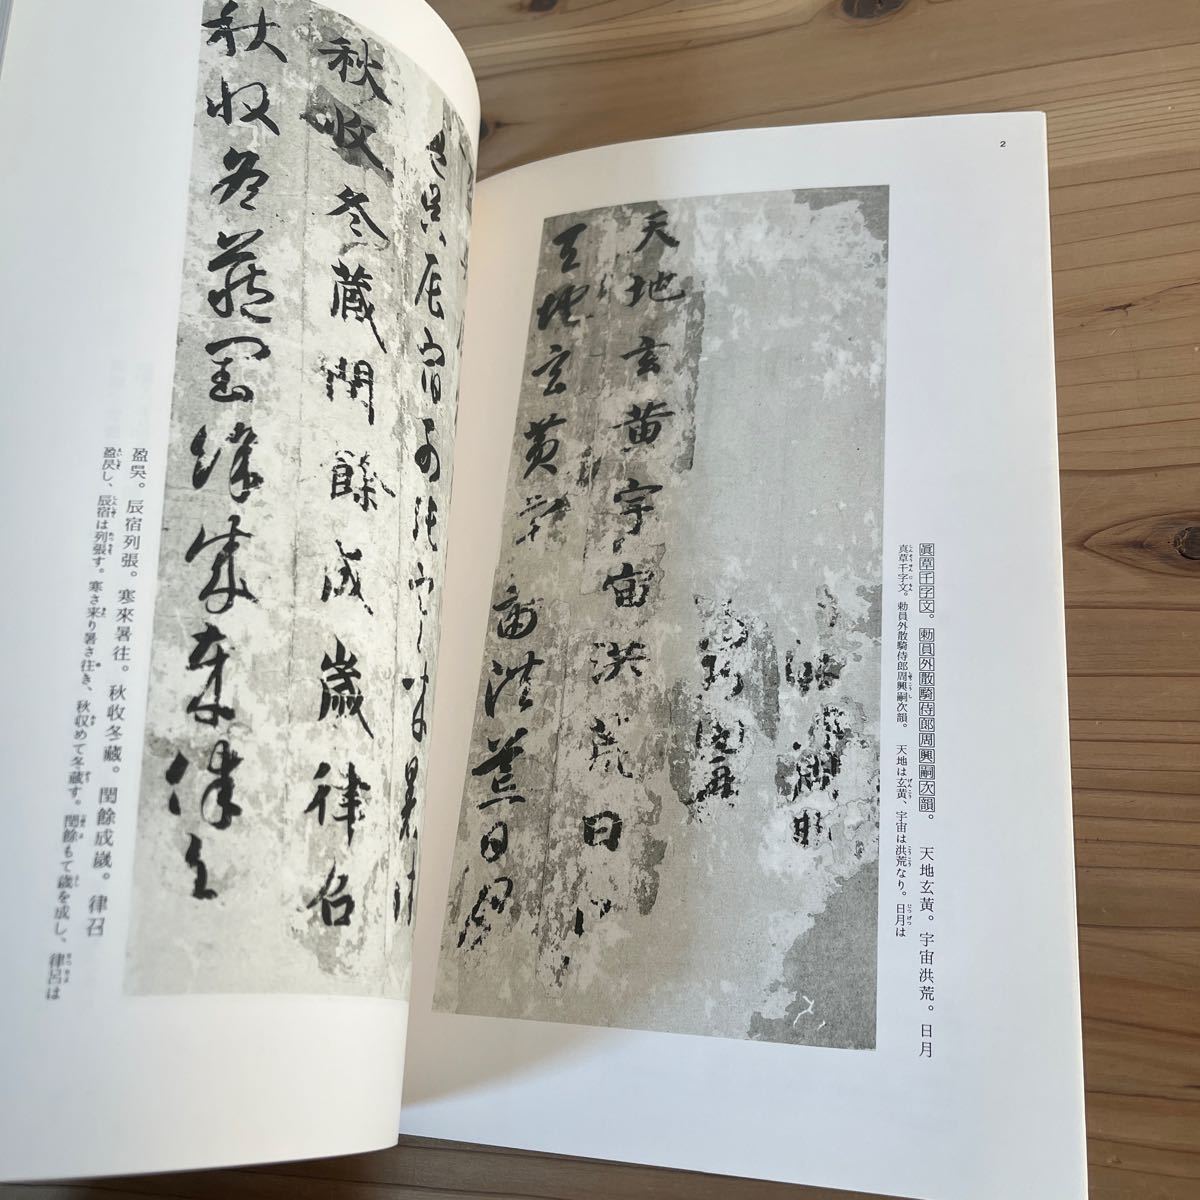 2
眞草千字文。勅員外散騎侍郎周興嗣次韻。 天地玄黃。宇宙洪荒。日月
真草千字文。勅員外散騎侍郎周興嗣次韻。 天地は玄黄、宇宙は洪荒なり。日月は
天地玄黃宇宙洪荒日月
天地玄黃宇宙洪荒日月
盈昃辰宿列張寒來暑
秋收冬藏閏餘成歲律召
秋收冬藏閏餘成歲律召
盈昃。辰宿列張。寒來暑往。秋收冬藏。閏餘成歲。律召
盈昃し、辰宿は列張す。寒さ来り暑さ往き、秋収めて冬蔵す。閏餘もて歳を成し、律呂は